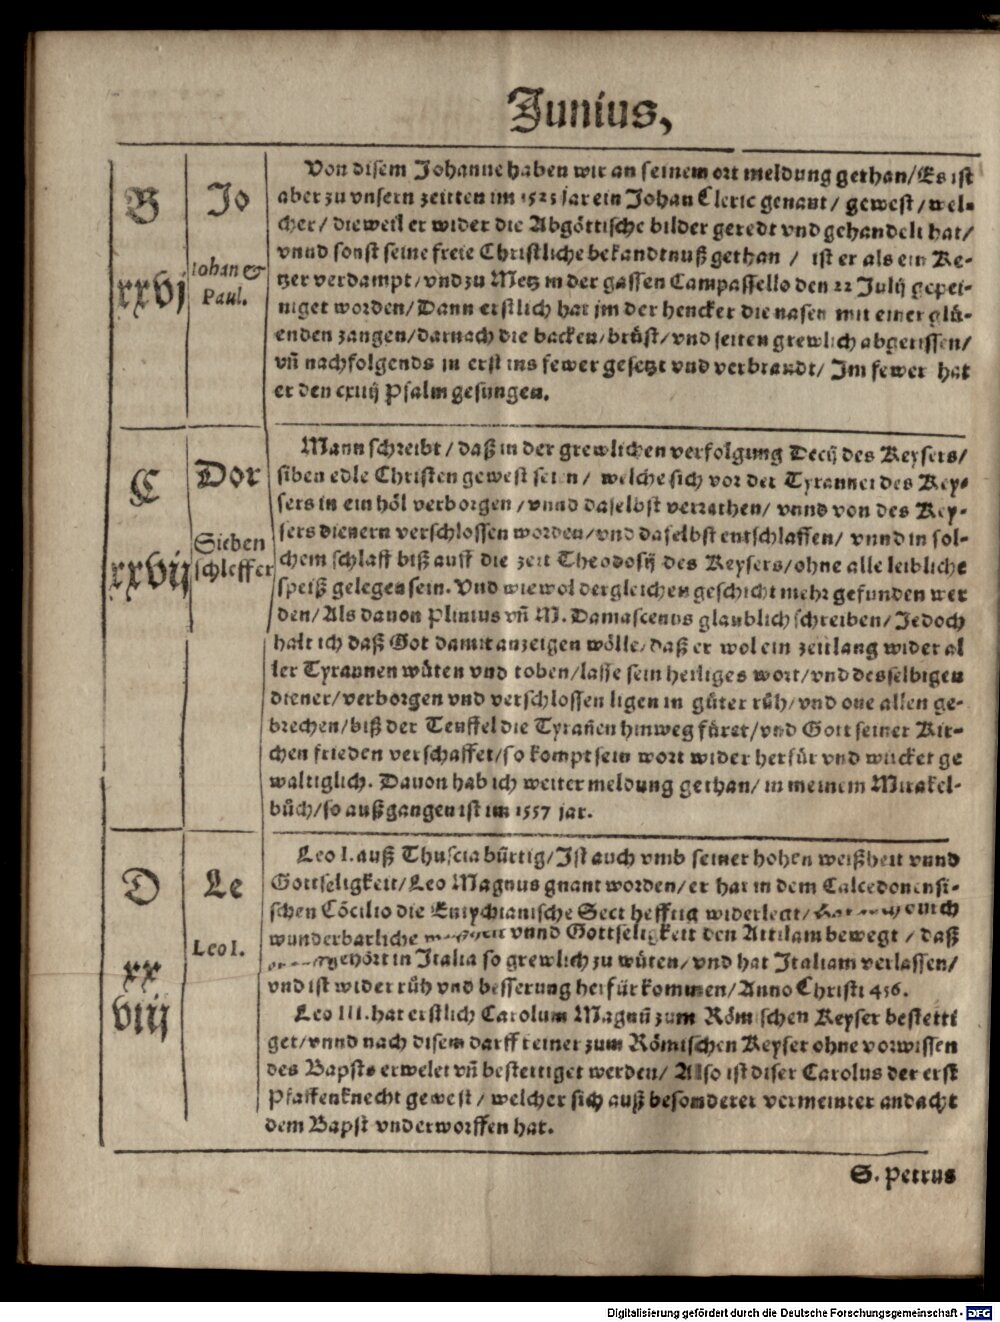 Junius,
B
Jo
xxvj
Iohan &
Paul.
Von disem Johanne haben wir an seinem ort meldung gethan/ Es ist
aber zu vnsern zeitten im 1525 jar ein Johan Cleric genant/ gewest/ wel-
cher/ dieweil er wider die Abgöttische bilder geredt vnd gehandelt hat/
vnnd sonst seine freie Christliche bekandtnuß gethan/ ist er als ein Ke-
tzer verdampt/ vnd zu Metz in der gassen Campassello den 22 Julij gepei-
niget worden/ Dann erstlich hat jm der hencker die nasen mit einer glü-
enden zangen/ darnach die backen/ brüst/ vnd seiten grewlich abgerissen/
vñ nachfolgends in erst ins fewer gesetzt vnd verbrandt/ Im fewer hat
er den cxiiij Psalm gesungen.
C
Dor
xxvij
Sieben
schleffer
Mann schreibt/ daß in der grewlichen verfolgung Decij des Keysers/
siben edle Christen gewest seien/ welche sich vor der Tyrannei des Key-
sers in ein höl verborgen/ vnnd daselbst verrathen/ vnnd von des Key-
sers dienern verschlossen worden/ vnd daselbst entschlaffen/ vnnd in sol-
chem schlaff biß auff die zeit Theodosij des Keysers/ ohne alle leibliche
speiß gelegen sein. Vnd wiewol dergleichen geschicht mehr gefunden wer
den/ Als dauon Plinius vñ M. Damascenus glaublich schreiben/ Jedoch
halt ich daß Got damit anzeigen wölle/ daß er wol ein zeitlang wider al
ler Tyrannen wüten vnd toben/ lasse sein heiliges wort/ vnd desselbigen
diener/ verborgen vnd verschlossen ligen in güter rüh/ vnd one allen ge-
brechen/ biß der Teuffel die Tyrañen hinweg füret/ vnd Gott seiner Kir-
chen frieden verschaffet/ so kompt sein wort wider herfür vnd wücket ge
waltiglich. Dauon hab ich weiter meldung gethan/ in meinem Mirakel-
büch/ so außgangen ist im 1557 jar.
D
Le
xx
viij
Leo I.
Leo I. auß Thuscia bürtig/ Ist auch vmb seiner hohen weißheit vnnd
Gottseligkeit/ Leo Magnus gnant worden/ er hat in dem Calcedonensi-
schen Cōcilio die Eutychianische Sect hefftig widerlegt/ durch
wunderbarliche vnnd Gottseligkeit den Attilam bewegt/ daß
gehört in Italia so grewlich zu wüten/ vnd hat Italiam verlassen/
vnd ist wider rüh vnd besserung herfür kommen/ Anno Christi 456.
Leo III. hat erstlich Carolum Magnū zum Römischen Keyser bestetti
get/ vnnd nach disem darff keiner zum Römischen Keyser ohne vorwissen
des Bapsts erwelet vñ bestettiget werden/ Also ist diser Carolus der erst
Pfaffenknecht gewest/ welcher sich auß besonderer vermeinter andacht
dem Bapst vnderworffen hat.
S. Petrus
Digitalisierung gefördert durch die Deutsche Forschungsgemeinschaft - DFG